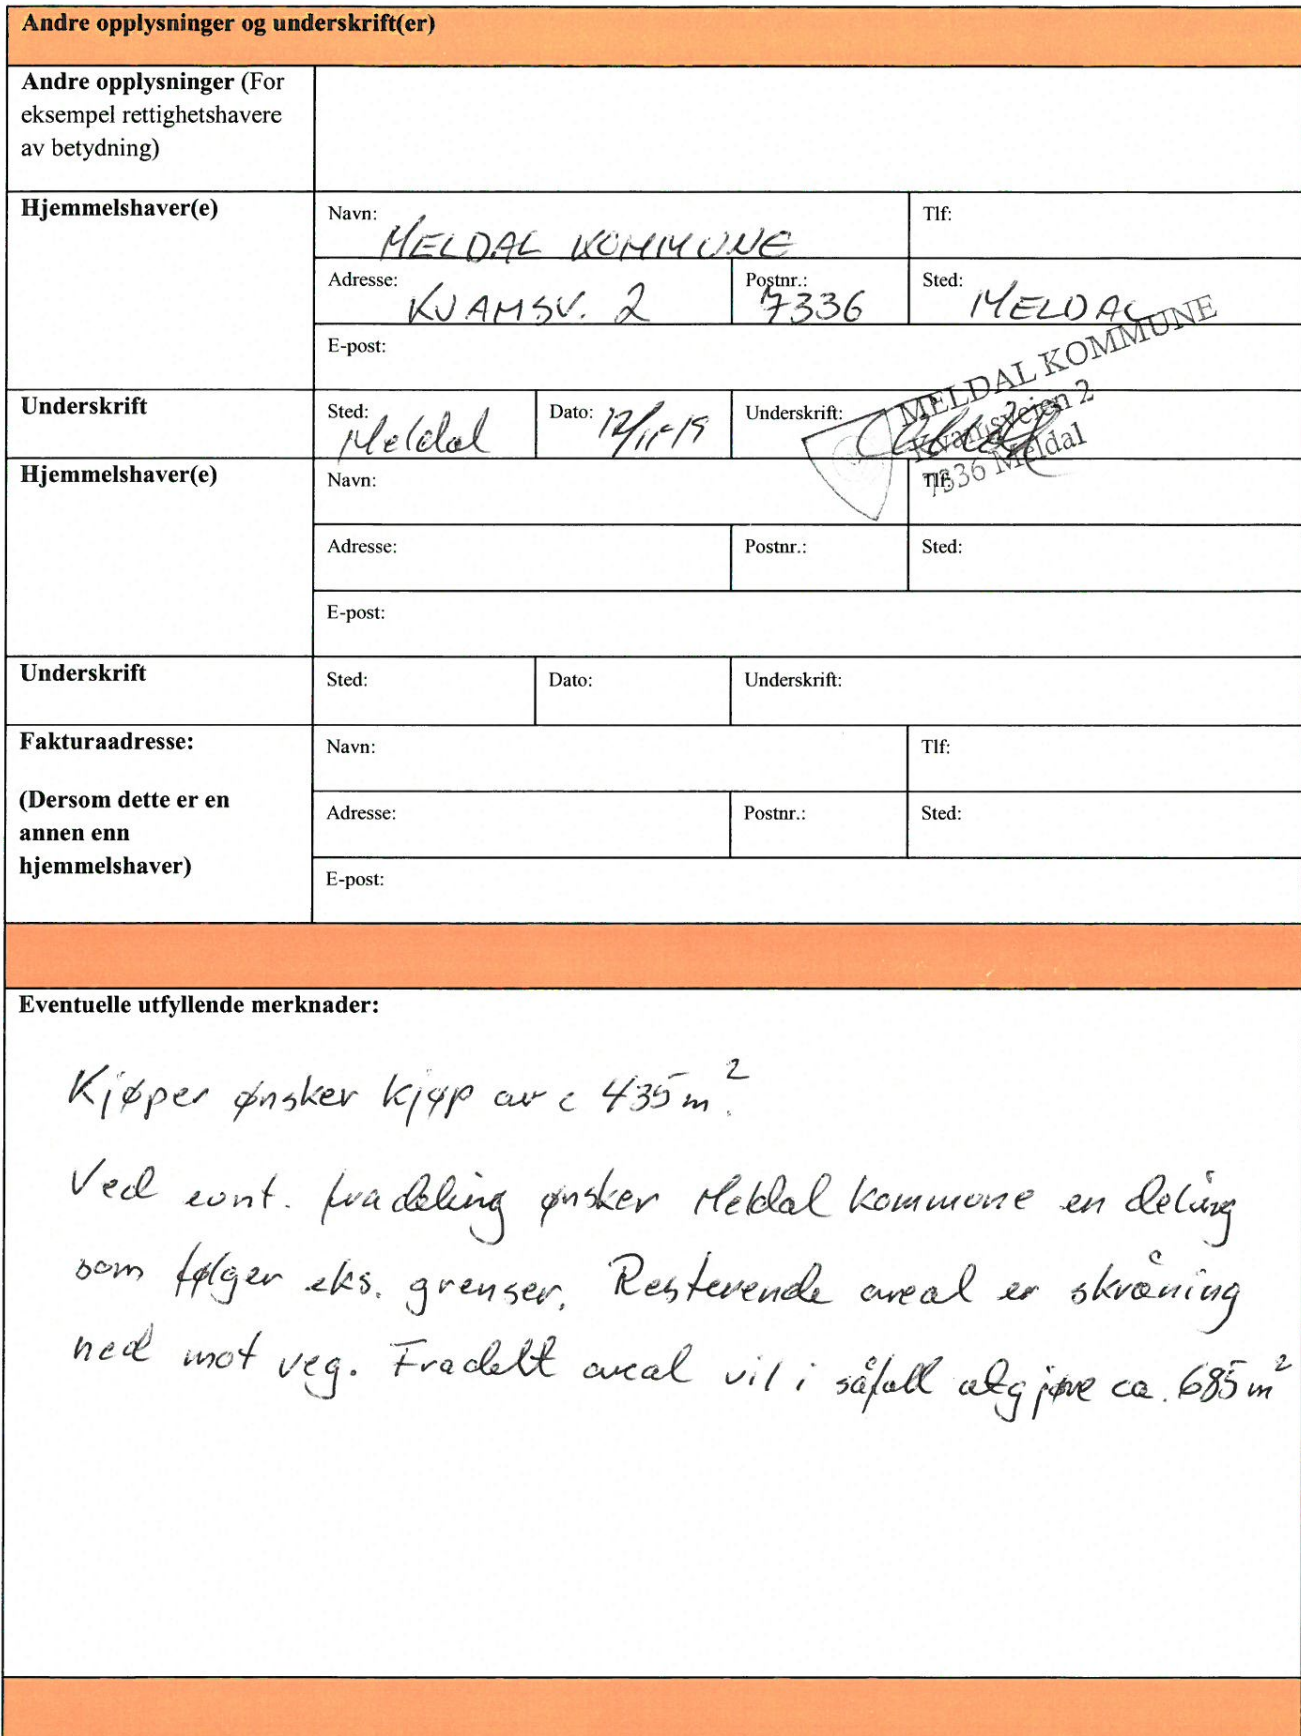 Andre opplysninger og underskrift(er)
Andre opplysninger (For
eksempel rettighetshavere
av betydning)
Hjemmelshaver(e)
Navn: MELDAL KOMMUNE
Tlf:
Adresse: KVAMSV. 2
Postnr.: 7336
Sted: MELDAL
E-post:
MELDAL KOMMUNE
Kvamsveien 2
7336 Meldal
Underskrift
Sted: Meldal
Dato: 12/11-19
Underskrift:
Hjemmelshaver(e)
Navn:
Tlf:
Adresse:
Postnr.:
Sted:
E-post:
Underskrift
Sted:
Dato:
Underskrift:
Fakturaadresse:
(Dersom dette er en
annen enn
hjemmelshaver)
Navn:
Tlf:
Adresse:
Postnr.:
Sted:
E-post:
Eventuelle utfyllende merknader:
Kjøper ønsker kjøp av c 435 m².
Ved evnt. fradeling ønsker Meldal kommune en deling
som følger eks. grenser. Resterende areal er skråning
ned mot veg. Fradelt areal vil i såfall utgjøre ca. 685 m²